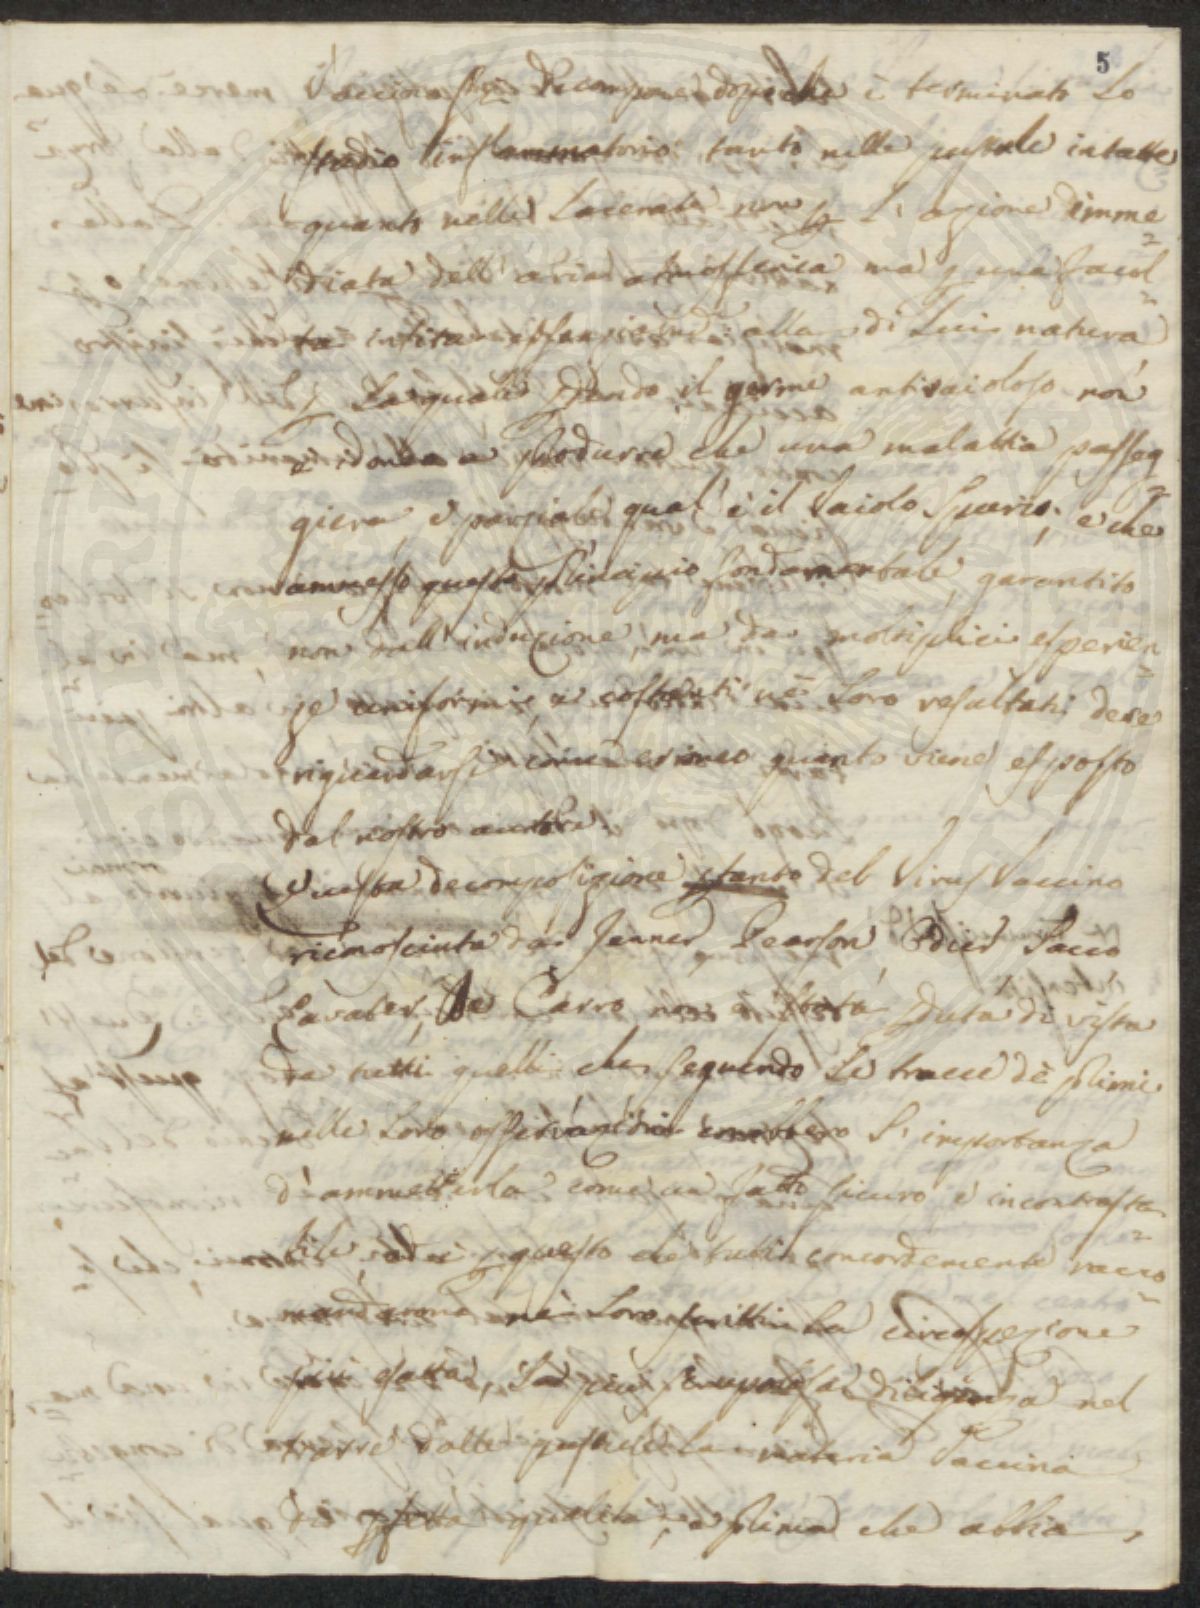 5
Vaccino si decompone dopo che è terminato Lo
stadio inflammatorio tanto nelle pustule intatte
quanto nelle Lacerate non p L'azione imme=
diata dell'aria atmosferica ma p una facol=
tà insita alla di Lui natura
p La quale pdendo il germe antivaioloso non
è idonea a produrre che una malattia passeg=
giera, e parziale qual'è il Vaiolo Spurio; e che
ammesso questo principio fondamentale, garantito
non dall'induzione, ma da moltiplici esperien=
ze uniformi, e costanti né Loro resultati deve
riguardarsi come erroneo quanto viene esposto
dal nostro autore.
Questa decomposizione stanto del Virus Vaccino
riconosciuta da Jenner, Pearson Odier Sacco
De Carro non è stata pduta di vista
da tutti quelli che seguendo Le tracce dè primi
nelle Loro osservazioni L'importanza
d'ammetterla come un fatto sicuro e incontrasta=
bile, ed è p questo che tutti concordemente racco=
mandarono né Loro scritti La circospezione
più esatta, La più scrupolosa diligenza nel
trarre dalle pustule La materia Vaccina
di pfetta qualità, e prima che abbia